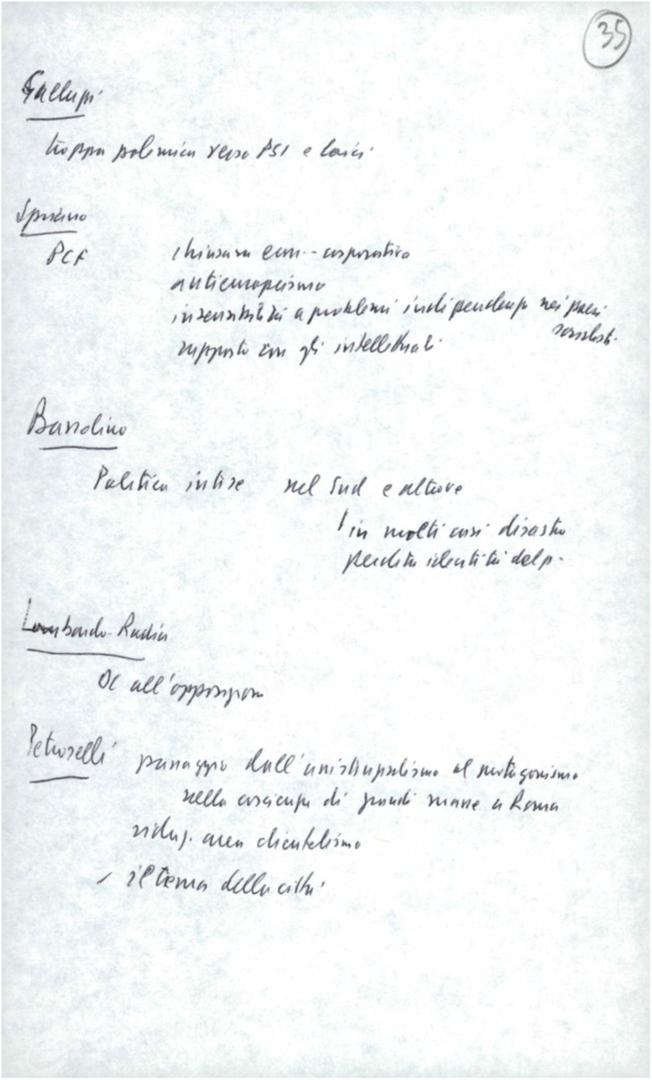 35
Gallupi
troppa polemica verso PSI e laici
Spriano
PCF chiusura econ.-corporativa
antieuropeismo
insensibilità a problemi indipendenza nei paesi
socialisti
rapporto con gli intellettuali
Bassolino
Politica intese nel Sud e altrove
in molti casi disastro
perdita identità del p.
Lombardo-Radice
DC all'opposizione
Petroselli passaggio dall' al protagonismo
nella coscienza di grandi masse a Roma
riduz. area clientelismo
il tema della città